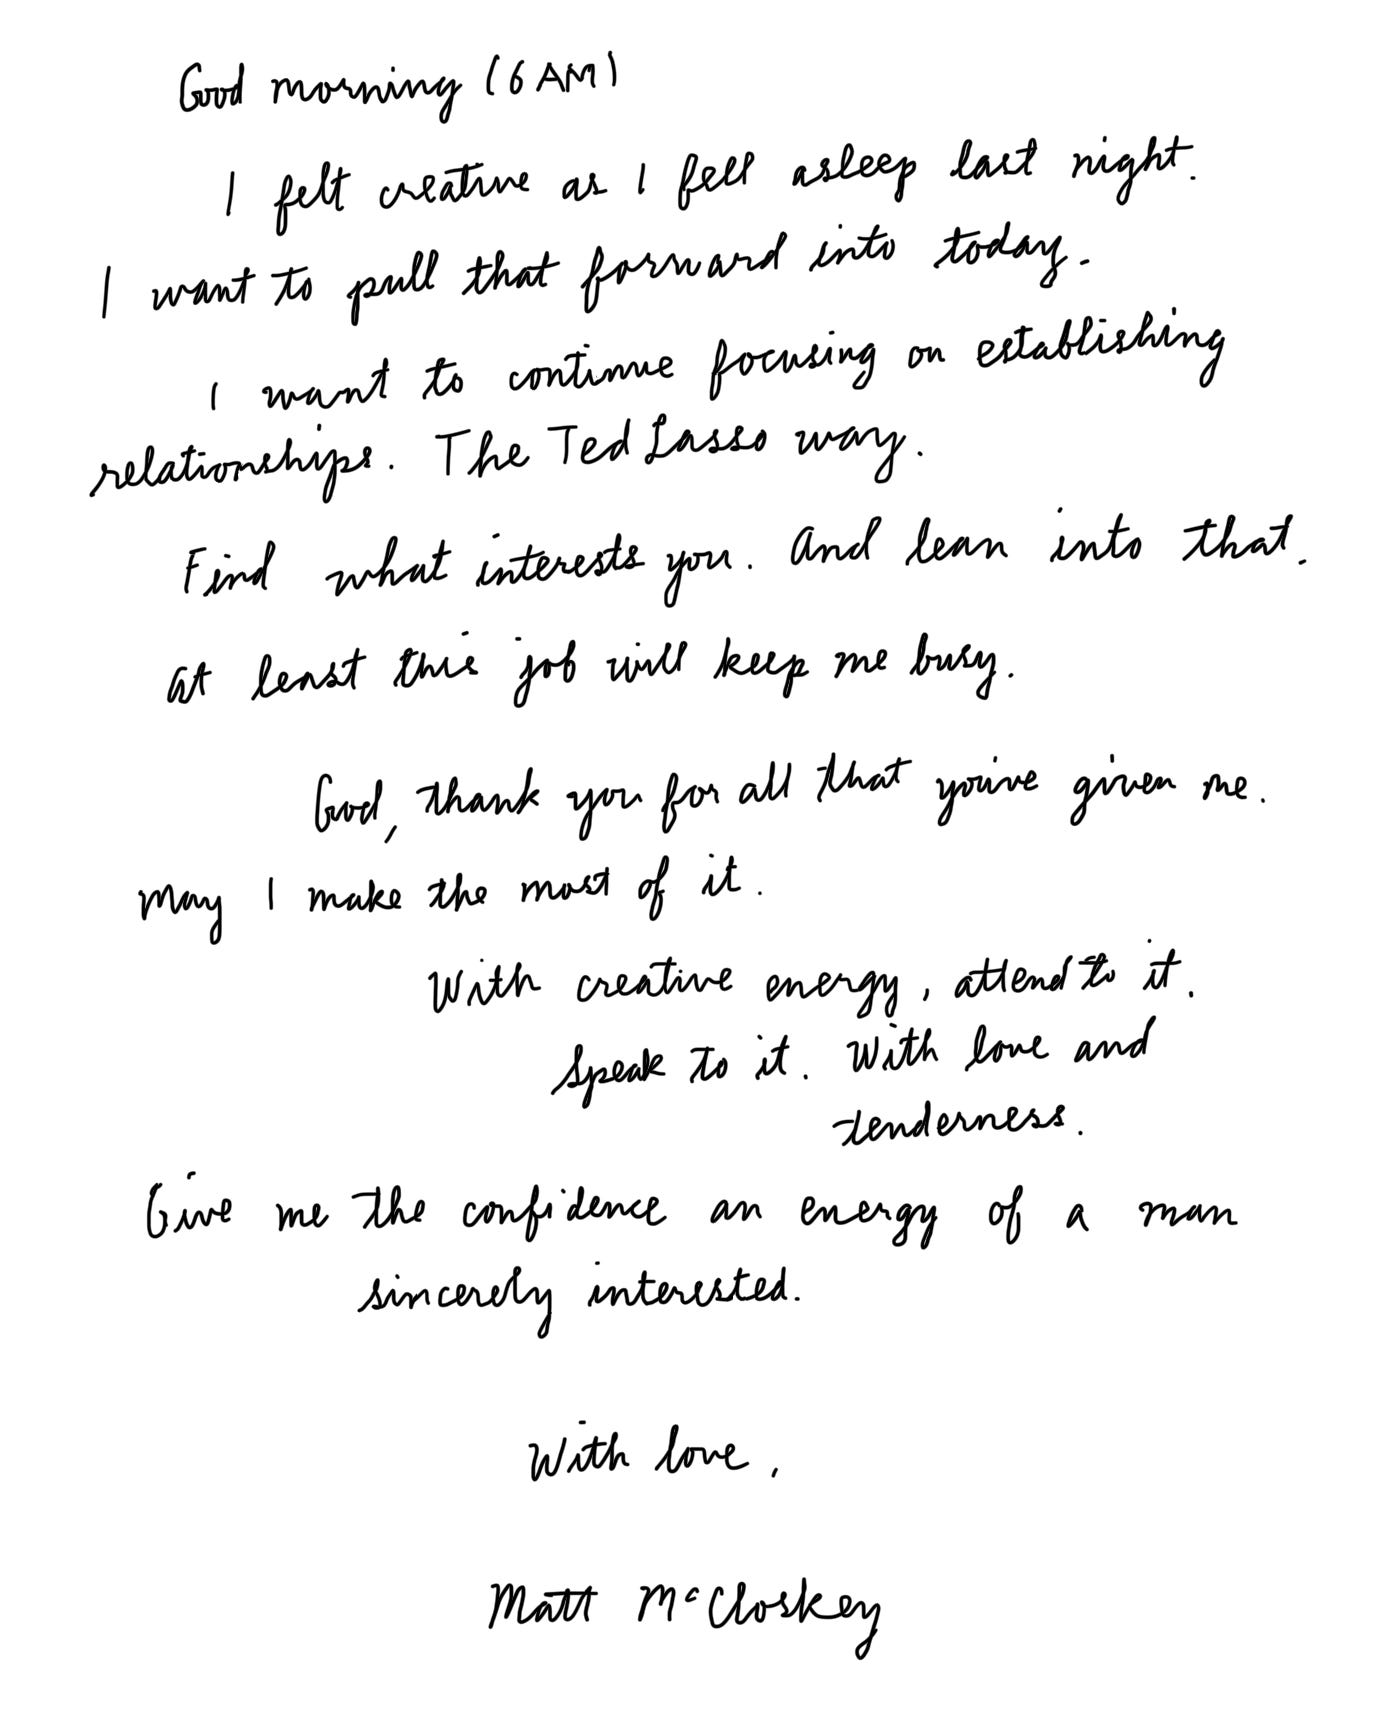 Good morning (6 AM)
I felt creative as I fell asleep last night.
I want to pull that forward into today.
I want to continue focusing on establishing
relationships. The Ted Lasso way.
Find what interests you. And lean into that.
At least this job will keep me busy.
God, thank you for all that you've given me.
May I make the most of it.
With creative energy, attend to it.
Speak to it. With love and
tenderness.
Give me the confidence an energy of a man
sincerely interested.
With love,
Matt McCloskey